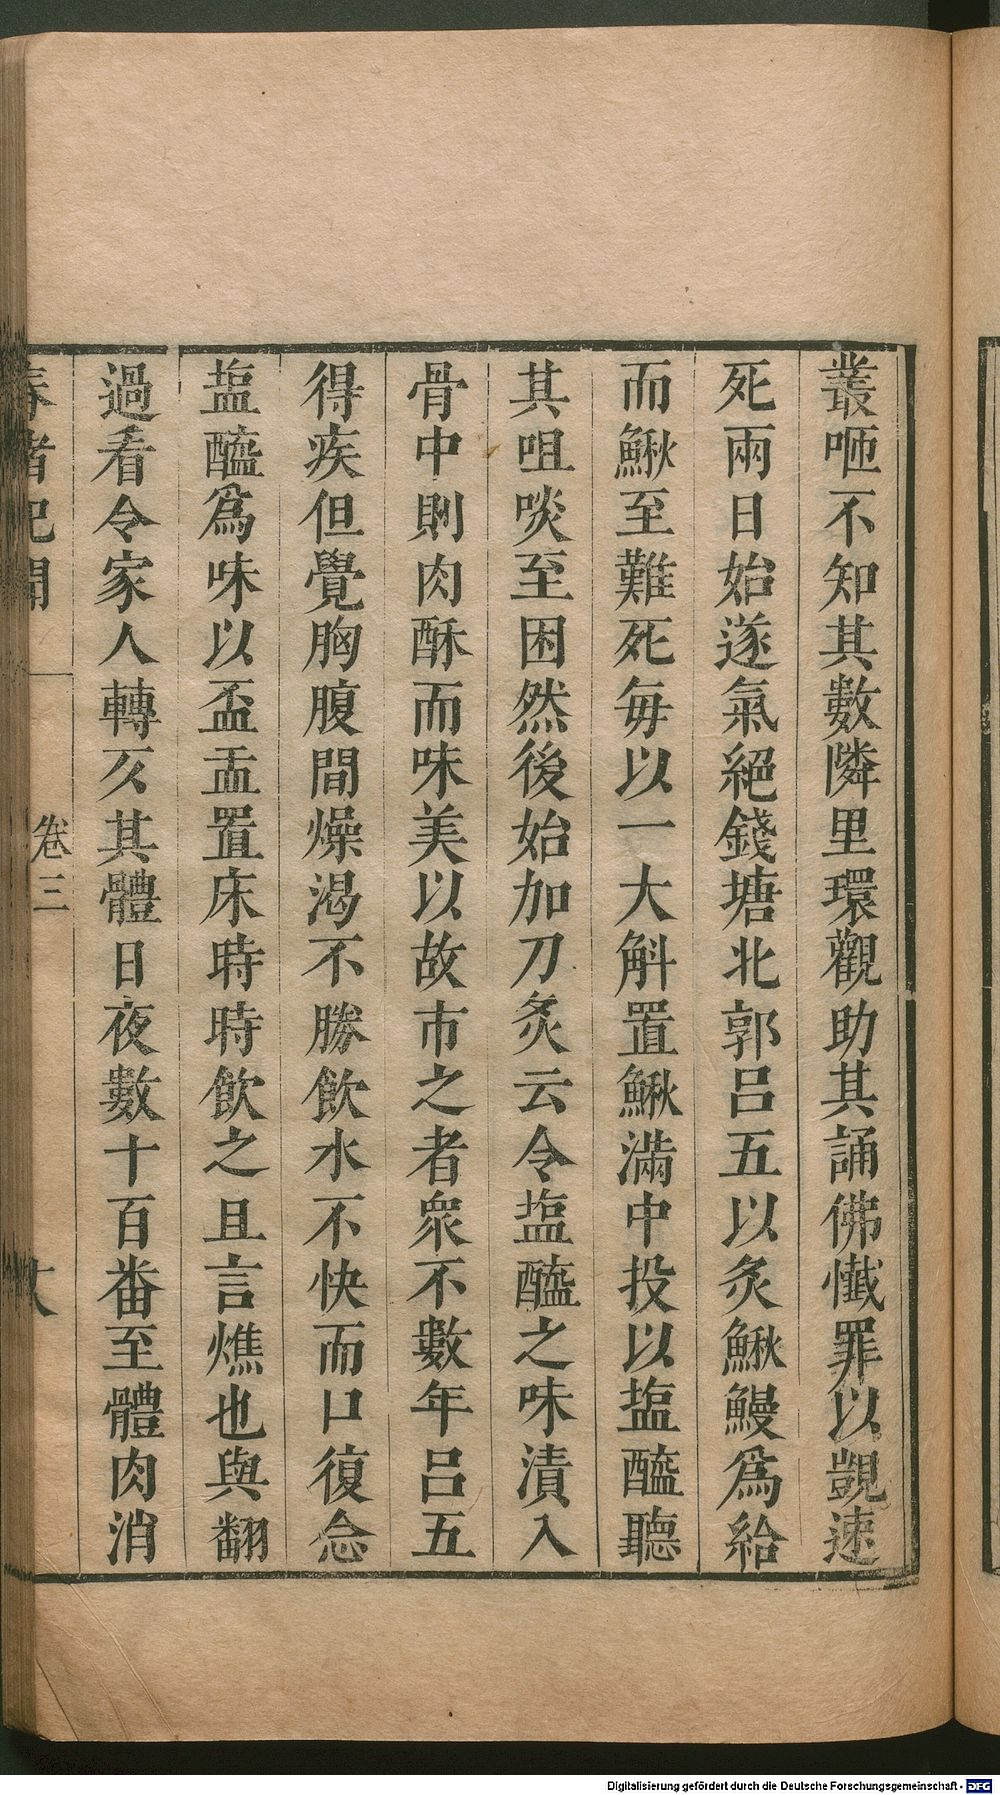 叢咂不知其數隣里環觀助其誦佛懺罪以覬速
死兩日始遂氣絕錢塘北郭呂五以炙鰍鰻爲給
而鰍至難死每以一大斛置鰍滿中投以塩醯聽
其咀啖至困然後始加刀炙云令塩醯之味漬入
骨中則肉酥而味美以故市之者衆不數年呂五
得疾但覺胸腹間燥渴不勝飲水不快而口復念
塩醯爲味以盃盂置床時時飲之且言燋也與翻
過看令家人轉仄其體日夜數十百番至體肉消
春渚紀聞
卷三
Digitalisierung gefördert durch die Deutsche Forschungsgemeinschaft - DFG